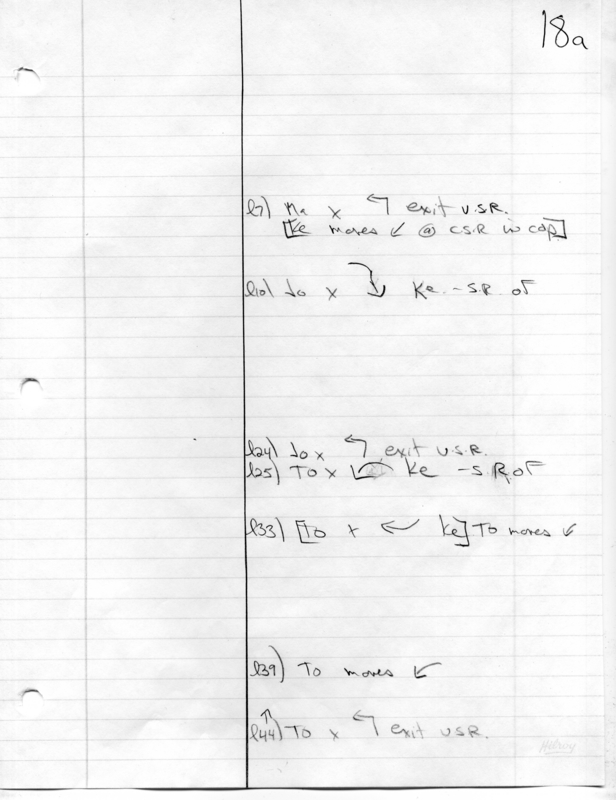 18a
l7) Ma x ↰ exit U.S.R.
[Ke moves ↙ @ C.S.R in cap]
l10) Jo x ↴ Ke - S.R. of
l24) Jo x ↰ exit U.S.R.
l25) To x ↙ Ke - S.R. of
l33) [To x ← Ke] To moves ↙
l39) To moves ↙
↑
l44) To x ↰ exit USR.
Hilroy